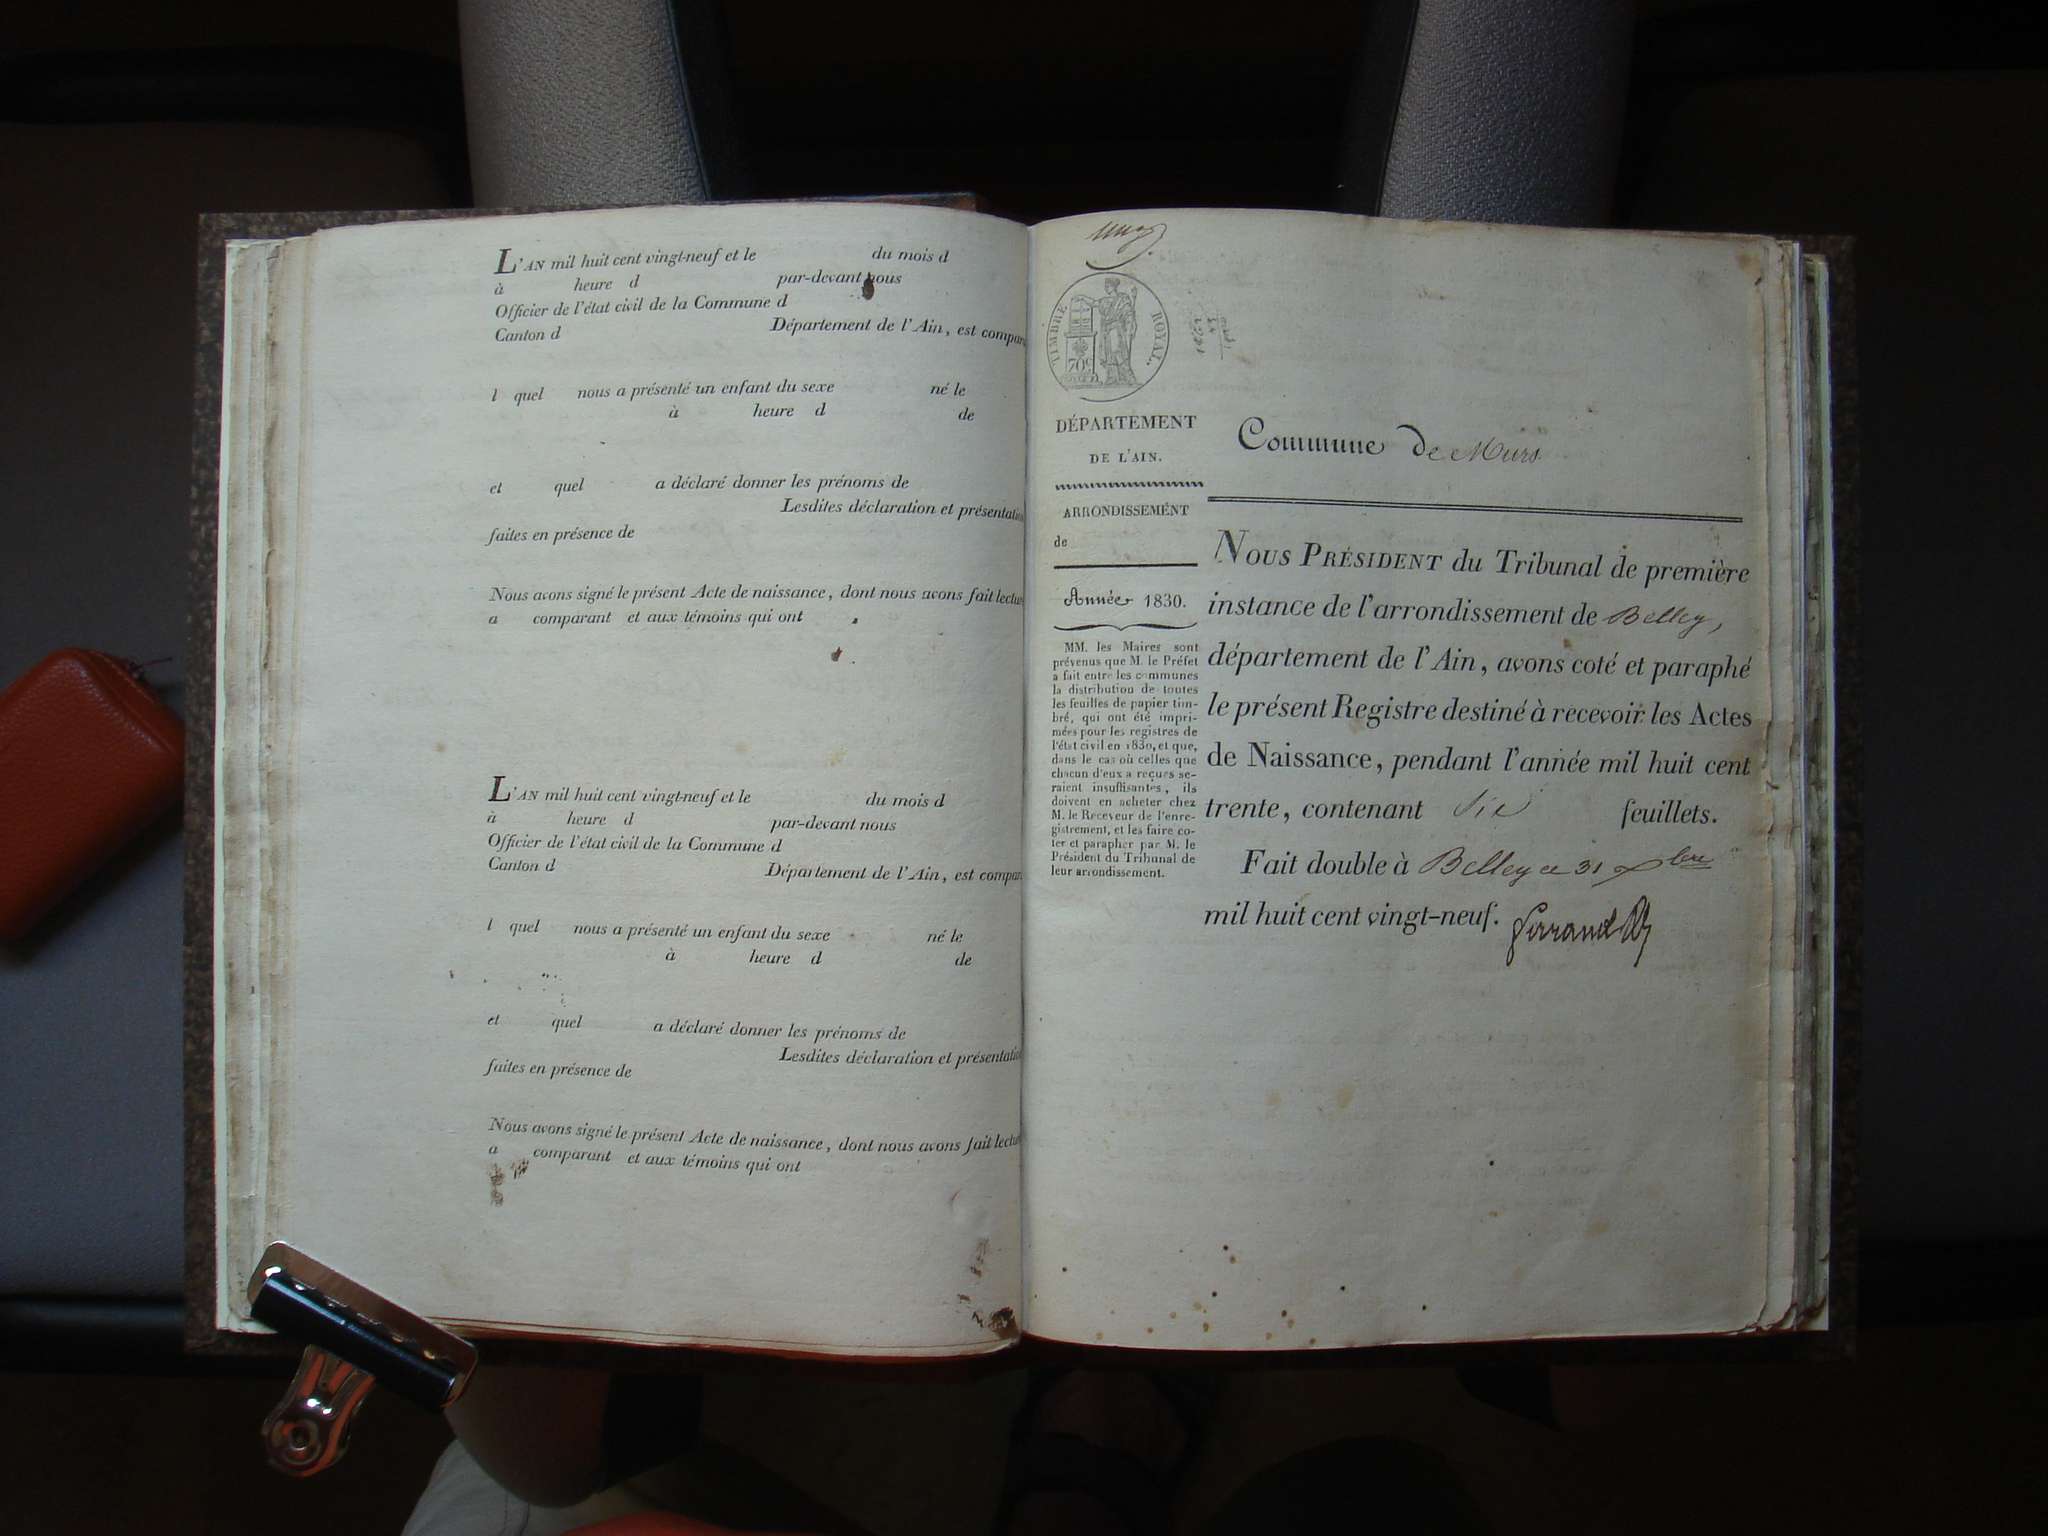 L'AN mil huit cent vingt-neuf et le du mois d
à heure d par-devant nous
Officier de l'état civil de la Commune d
Canton d Département de l'Ain, est compar
l quel nous a présenté un enfant du sexe né le
à heure d de
et quel a déclaré donner les prénoms de
Lesdites déclaration et présentation
faites en présence de
Nous avons signé le présent Acte de naissance, dont nous avons fait lecture
a comparant et aux témoins qui ont
L'AN mil huit cent vingt-neuf et le du mois d
à heure d par-devant nous
Officier de l'état civil de la Commune d
Canton d Département de l'Ain, est compar
l quel nous a présenté un enfant du sexe né le
à heure d de
et quel a déclaré donner les prénoms de
Lesdites déclaration et présentation
faites en présence de
Nous avons signé le présent Acte de naissance, dont nous avons fait lecture
a comparant et aux témoins qui ont
TIMBRE ROYAL
70c
DÉPARTEMENT
DE L'AIN.
ARRONDISSEMENT
de
Année 1830.
MM. les Maires sont
prévenus que M. le Préfet
a fait entre les communes
la distribution de toutes
les feuilles de papier tim-
bré, qui ont été impri-
mées pour les registres de
l'état civil en 1830, et que,
dans le cas où celles que
chacun d'eux a reçues se-
raient insuffisantes, ils
doivent en acheter chez
M. le Receveur de l'enre-
gistrement, et les faire co-
ter et parapher par M. le
Président du Tribunal de
leur arrondissement.
Commune de Murs
NOUS PRÉSIDENT du Tribunal de première
instance de l'arrondissement de Belley,
département de l'Ain, avons coté et paraphé
le présent Registre destiné à recevoir les Actes
de Naissance, pendant l'année mil huit cent
trente, contenant Six feuillets.
Fait double à Belley ce 31 xbre
mil huit cent vingt-neuf. Ferrand